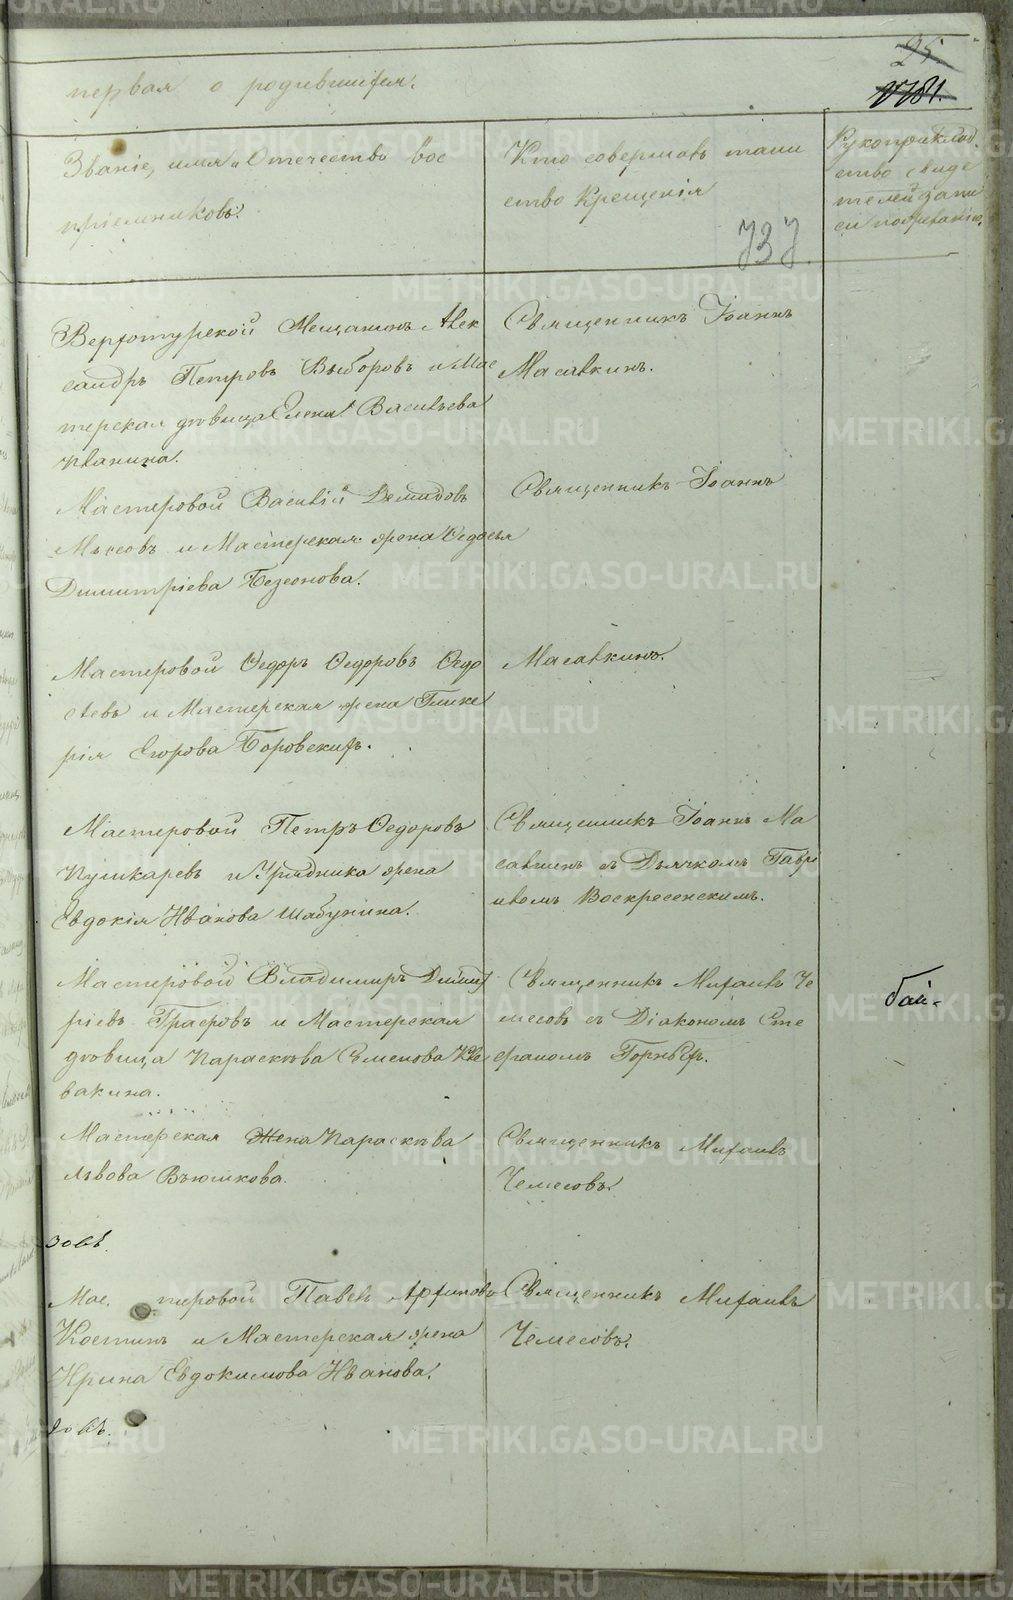 25.
1781.
первая о родившихся.
Званіе, имя и Отечество вос
пріемниковъ.
Кто совершалъ таин
ство Крещенія
737.
Рукоприклад
ство свиде
телей запи
си по желанію.
Верхотурской Мещанинъ Алек
сандръ Петровъ Выборовъ и Мас
терская дѣвица Елена Васильева
Священникъ Іоаннъ
Масалкинъ.
Мастеровой Василій Демидовъ
и Мастерская жена Ѳедосья
Димитріева
Священникъ Іоаннъ
Масалкинъ.
Мастеровой Ѳедоръ Ѳедоровъ Ѳедо
сѣевъ и Мастерская жена Глике
рія Егорова Боровскихъ.
Мастеровой Петръ Ѳедоровъ
Пушкаревъ и Урядника жена
Евдокія Иванова Шабунина.
Священникъ Іоаннъ Ма
салкинъ съ Дьячкомъ Гаврі
иломъ Воскресенскимъ.
Мастеровой Владимиръ Димит
ріевъ и Мастерская
дѣвица Параскѣва Семенова
вакина.
Священникъ Михаилъ Че
месовъ съ Діакономъ Сте
фаномъ Горныхъ.
Мастерская Жена Параскѣва
Львова Вьюшкова.
Священникъ Михаилъ
Чемесовъ.
зовѣ.
Мас. теровой Павелъ Архиповъ
Костинъ и Мастерская жена
Ирина Евдокимова Иванова.
Священникъ Михаилъ
Чемесовъ.
METRIKI.GASO-URAL.RU